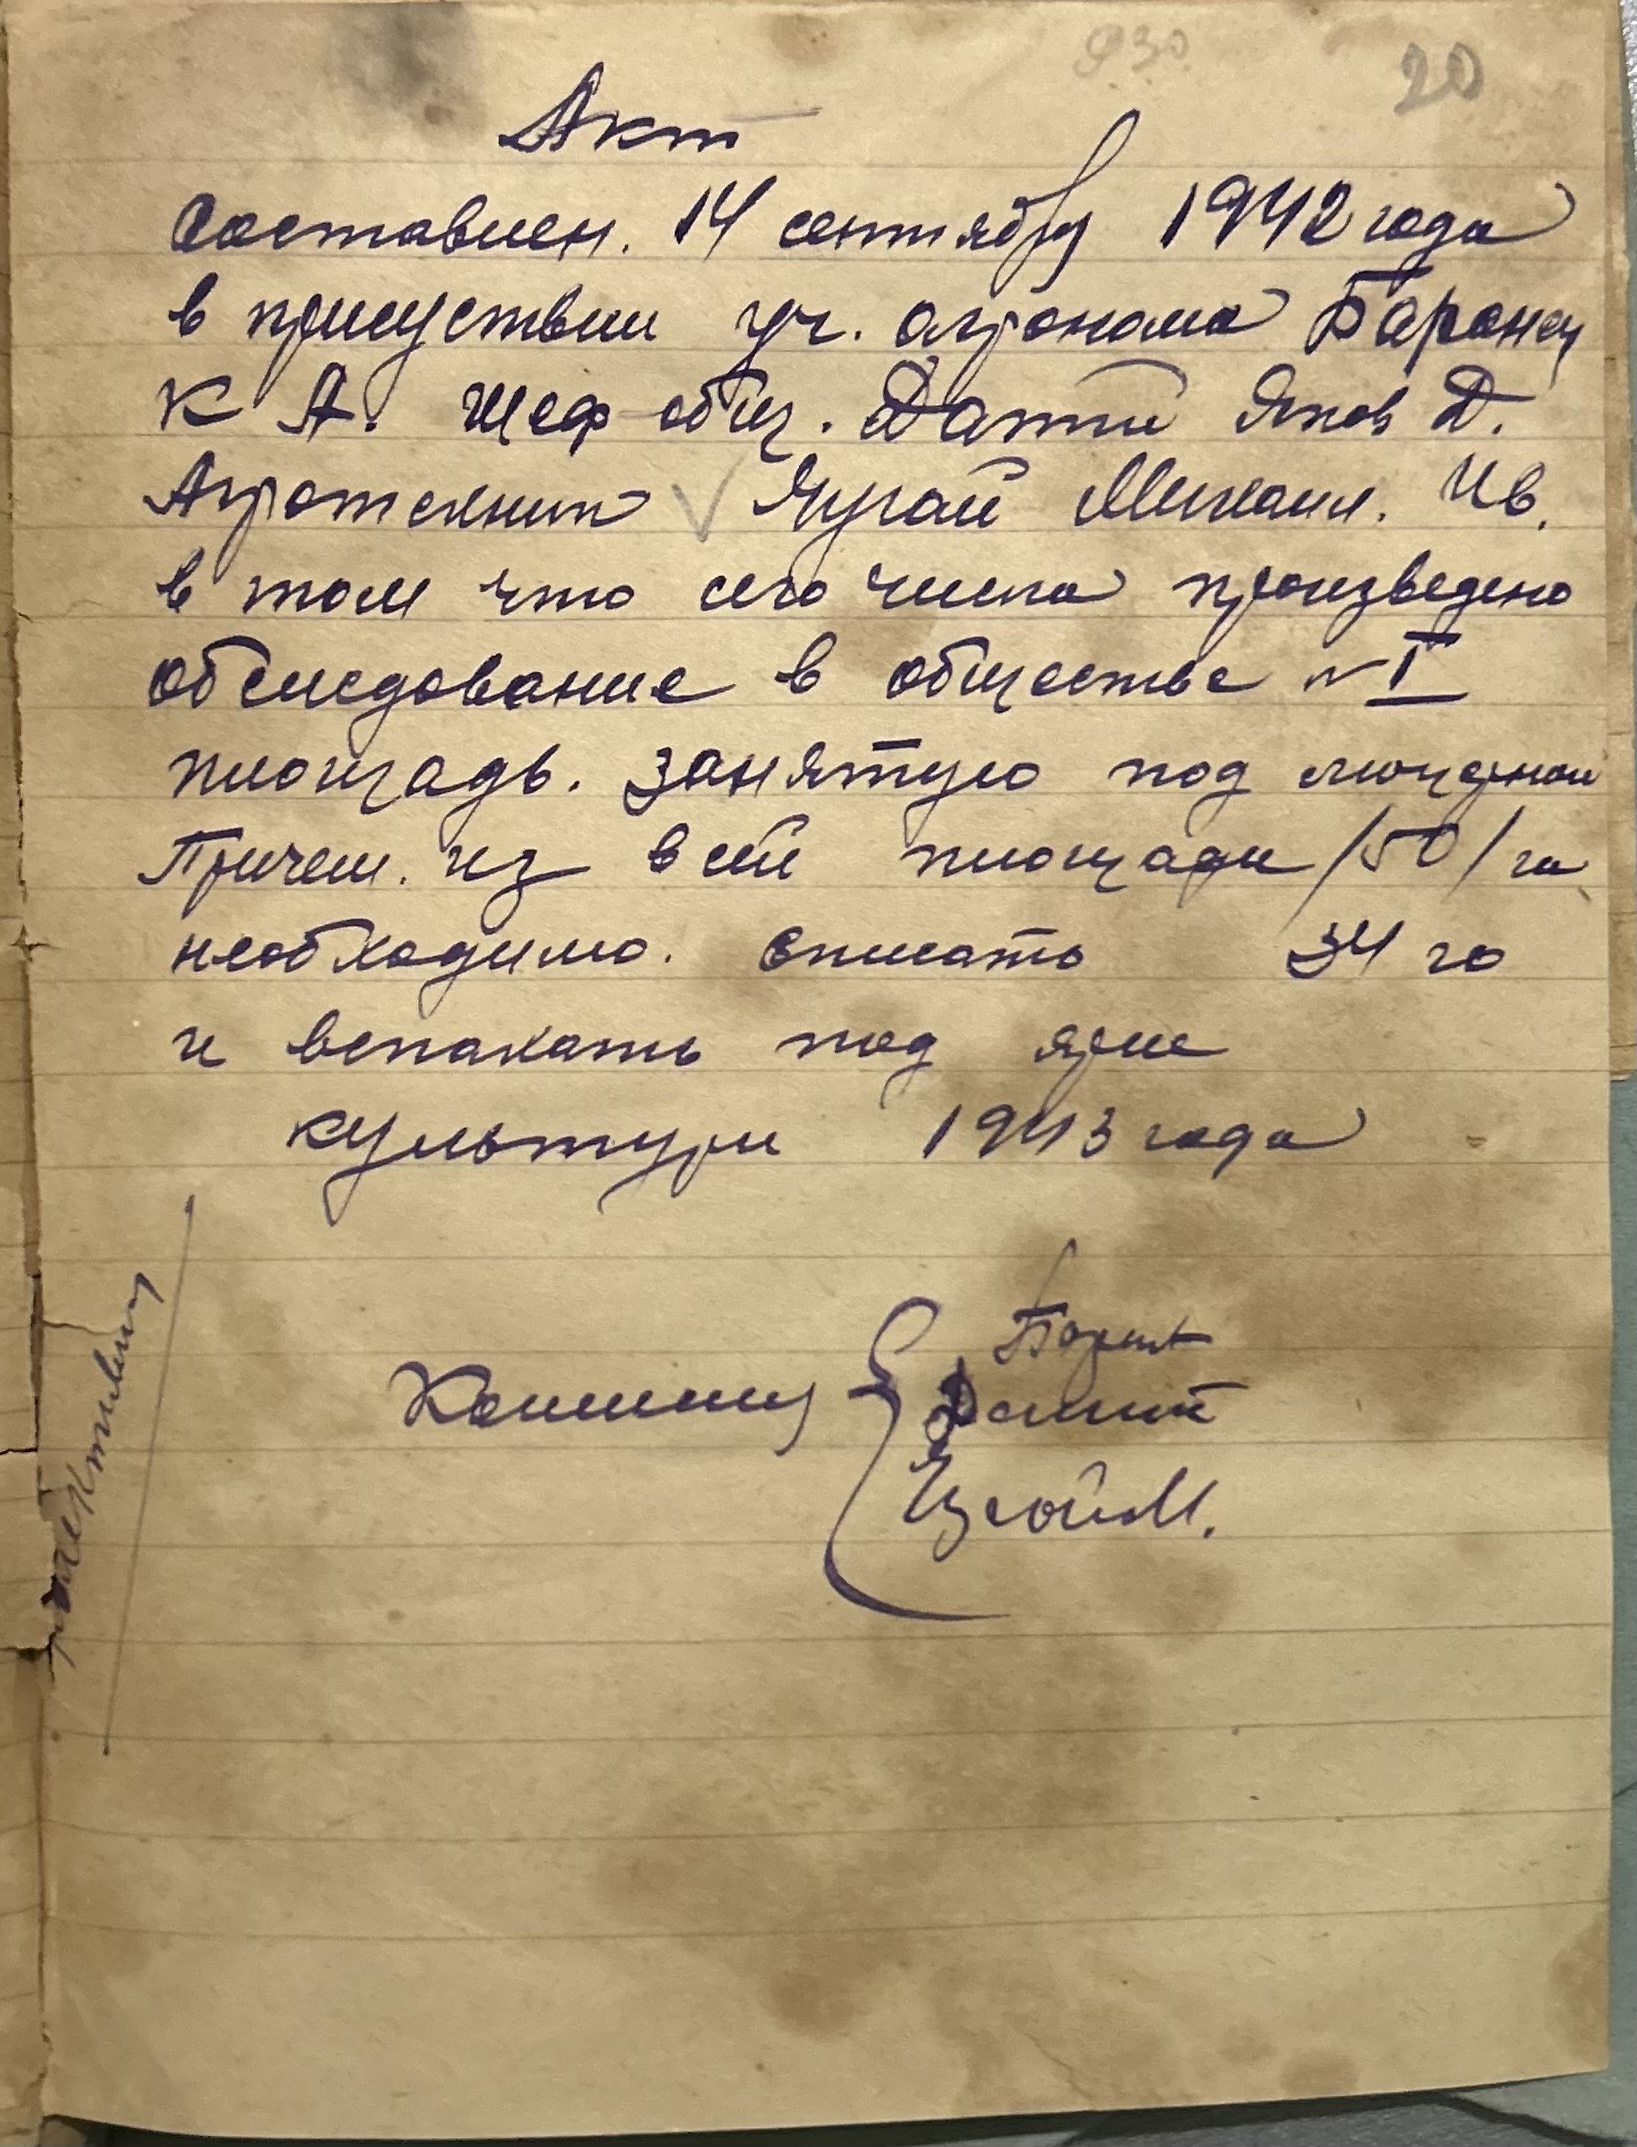 930
20
Акт
Составлен. 14 сентября 1942 года
в присуствии уч. агронома Баронец
К А. Шеф общ. Даттй Яков Д.
Агротехник Яугай Михаил. Ив.
в том что сего числа произведено
обследование в обществе №I
площадь. занятую под люцерной
Причем. из всей площади /50/ га
необходимо. списать 34 га
и вспахать под ярие
культури 1943 года
Комисия
Цсой М.